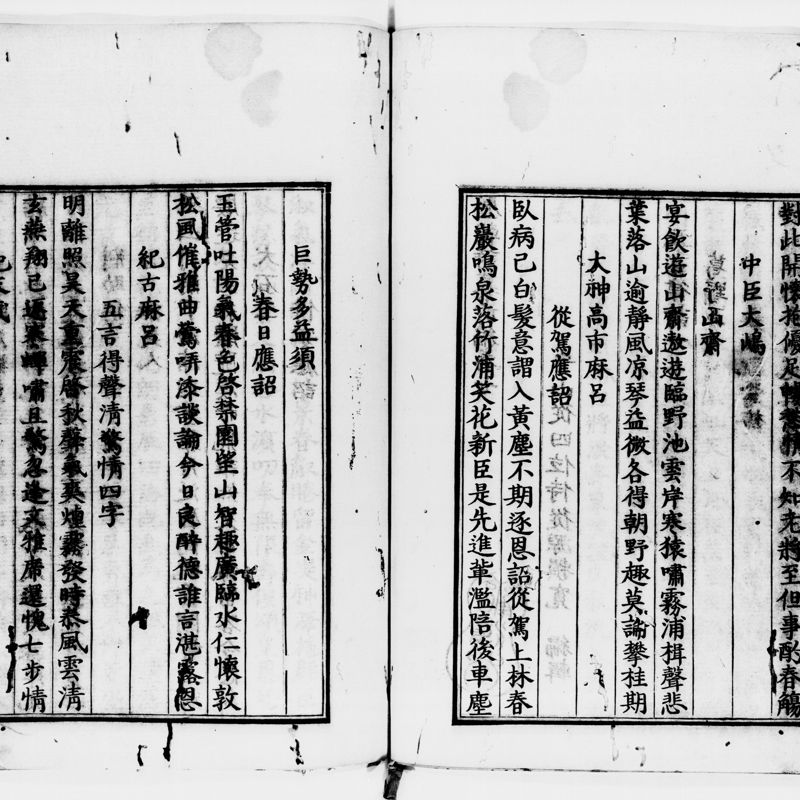 對此開懷抱優足暢愁情不知老將至但事酌春觴
中臣大嶋
葛野山齋
宴飲遊山齋遨遊臨野池雲岸寒猿嘯霧浦楫聲悲
葉落山逾靜風凉琴益微各得朝野趣莫論攀桂期
大神高市麻呂
從駕應詔
臥病已白髮意謂入黃塵不期逐恩詔從駕上林春
松巖鳴泉落竹浦笑花新臣是先進輩濫陪後車塵
巨勢多益須
春日應詔
玉管吐陽氣春色啓禁園望山智趣廣臨水仁懷敦
松風催雅曲鶯哢添談論今日良醉德誰言湛露恩
紀古麻呂
五言得聲清驚情四字
明離照昊天重震啓秋聲氣爽煙霧發時泰風雲清
玄燕翔已還寒蟬嘯且驚忽逢文雅席還愧七步情